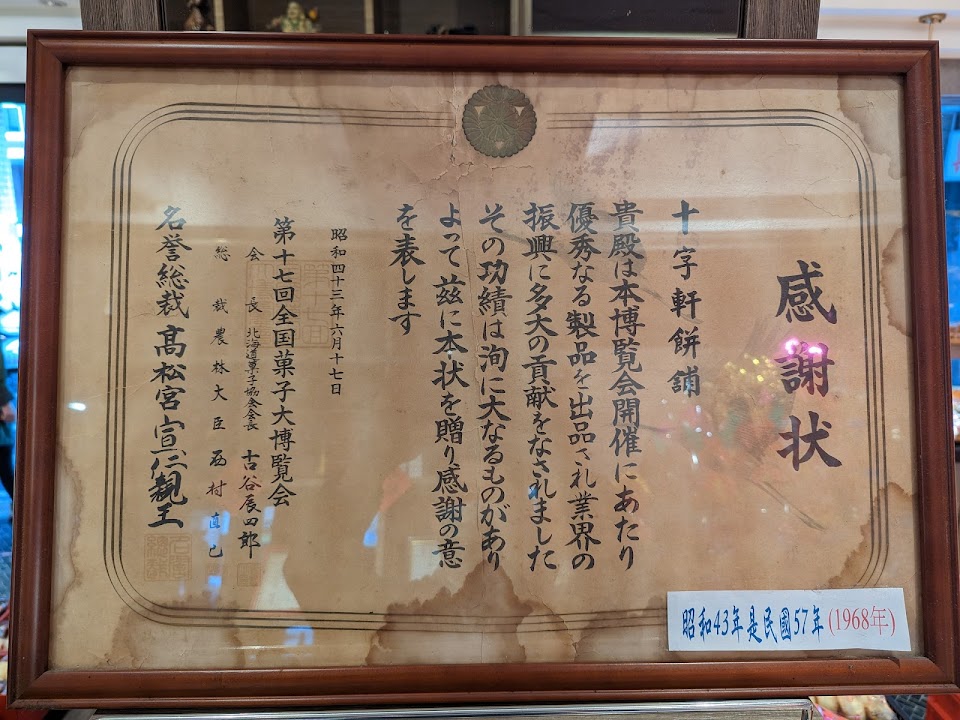 感謝状
十字軒餅舗
貴殿は本博覧会開催にあたり
優秀なる製品を出品され業界の
振興に多大の貢献をなされました
その功績は洵に大なるものがあり
よって茲に本状を贈り感謝の意
を表します
昭和四十三年六月十七日
第十七回全国菓子大博覧会
会長 北海道菓子協会会長 古谷辰四郎
総裁 農林大臣 西村直己
名誉総裁 高松宮宣仁親王
昭和43年是民國57年(1968年)